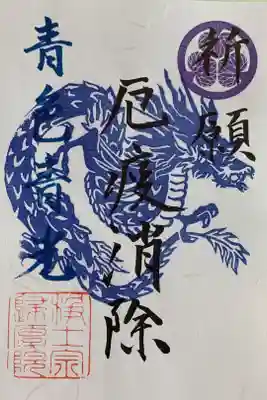 祈願
厄疫消除
青色青光
浄土宗